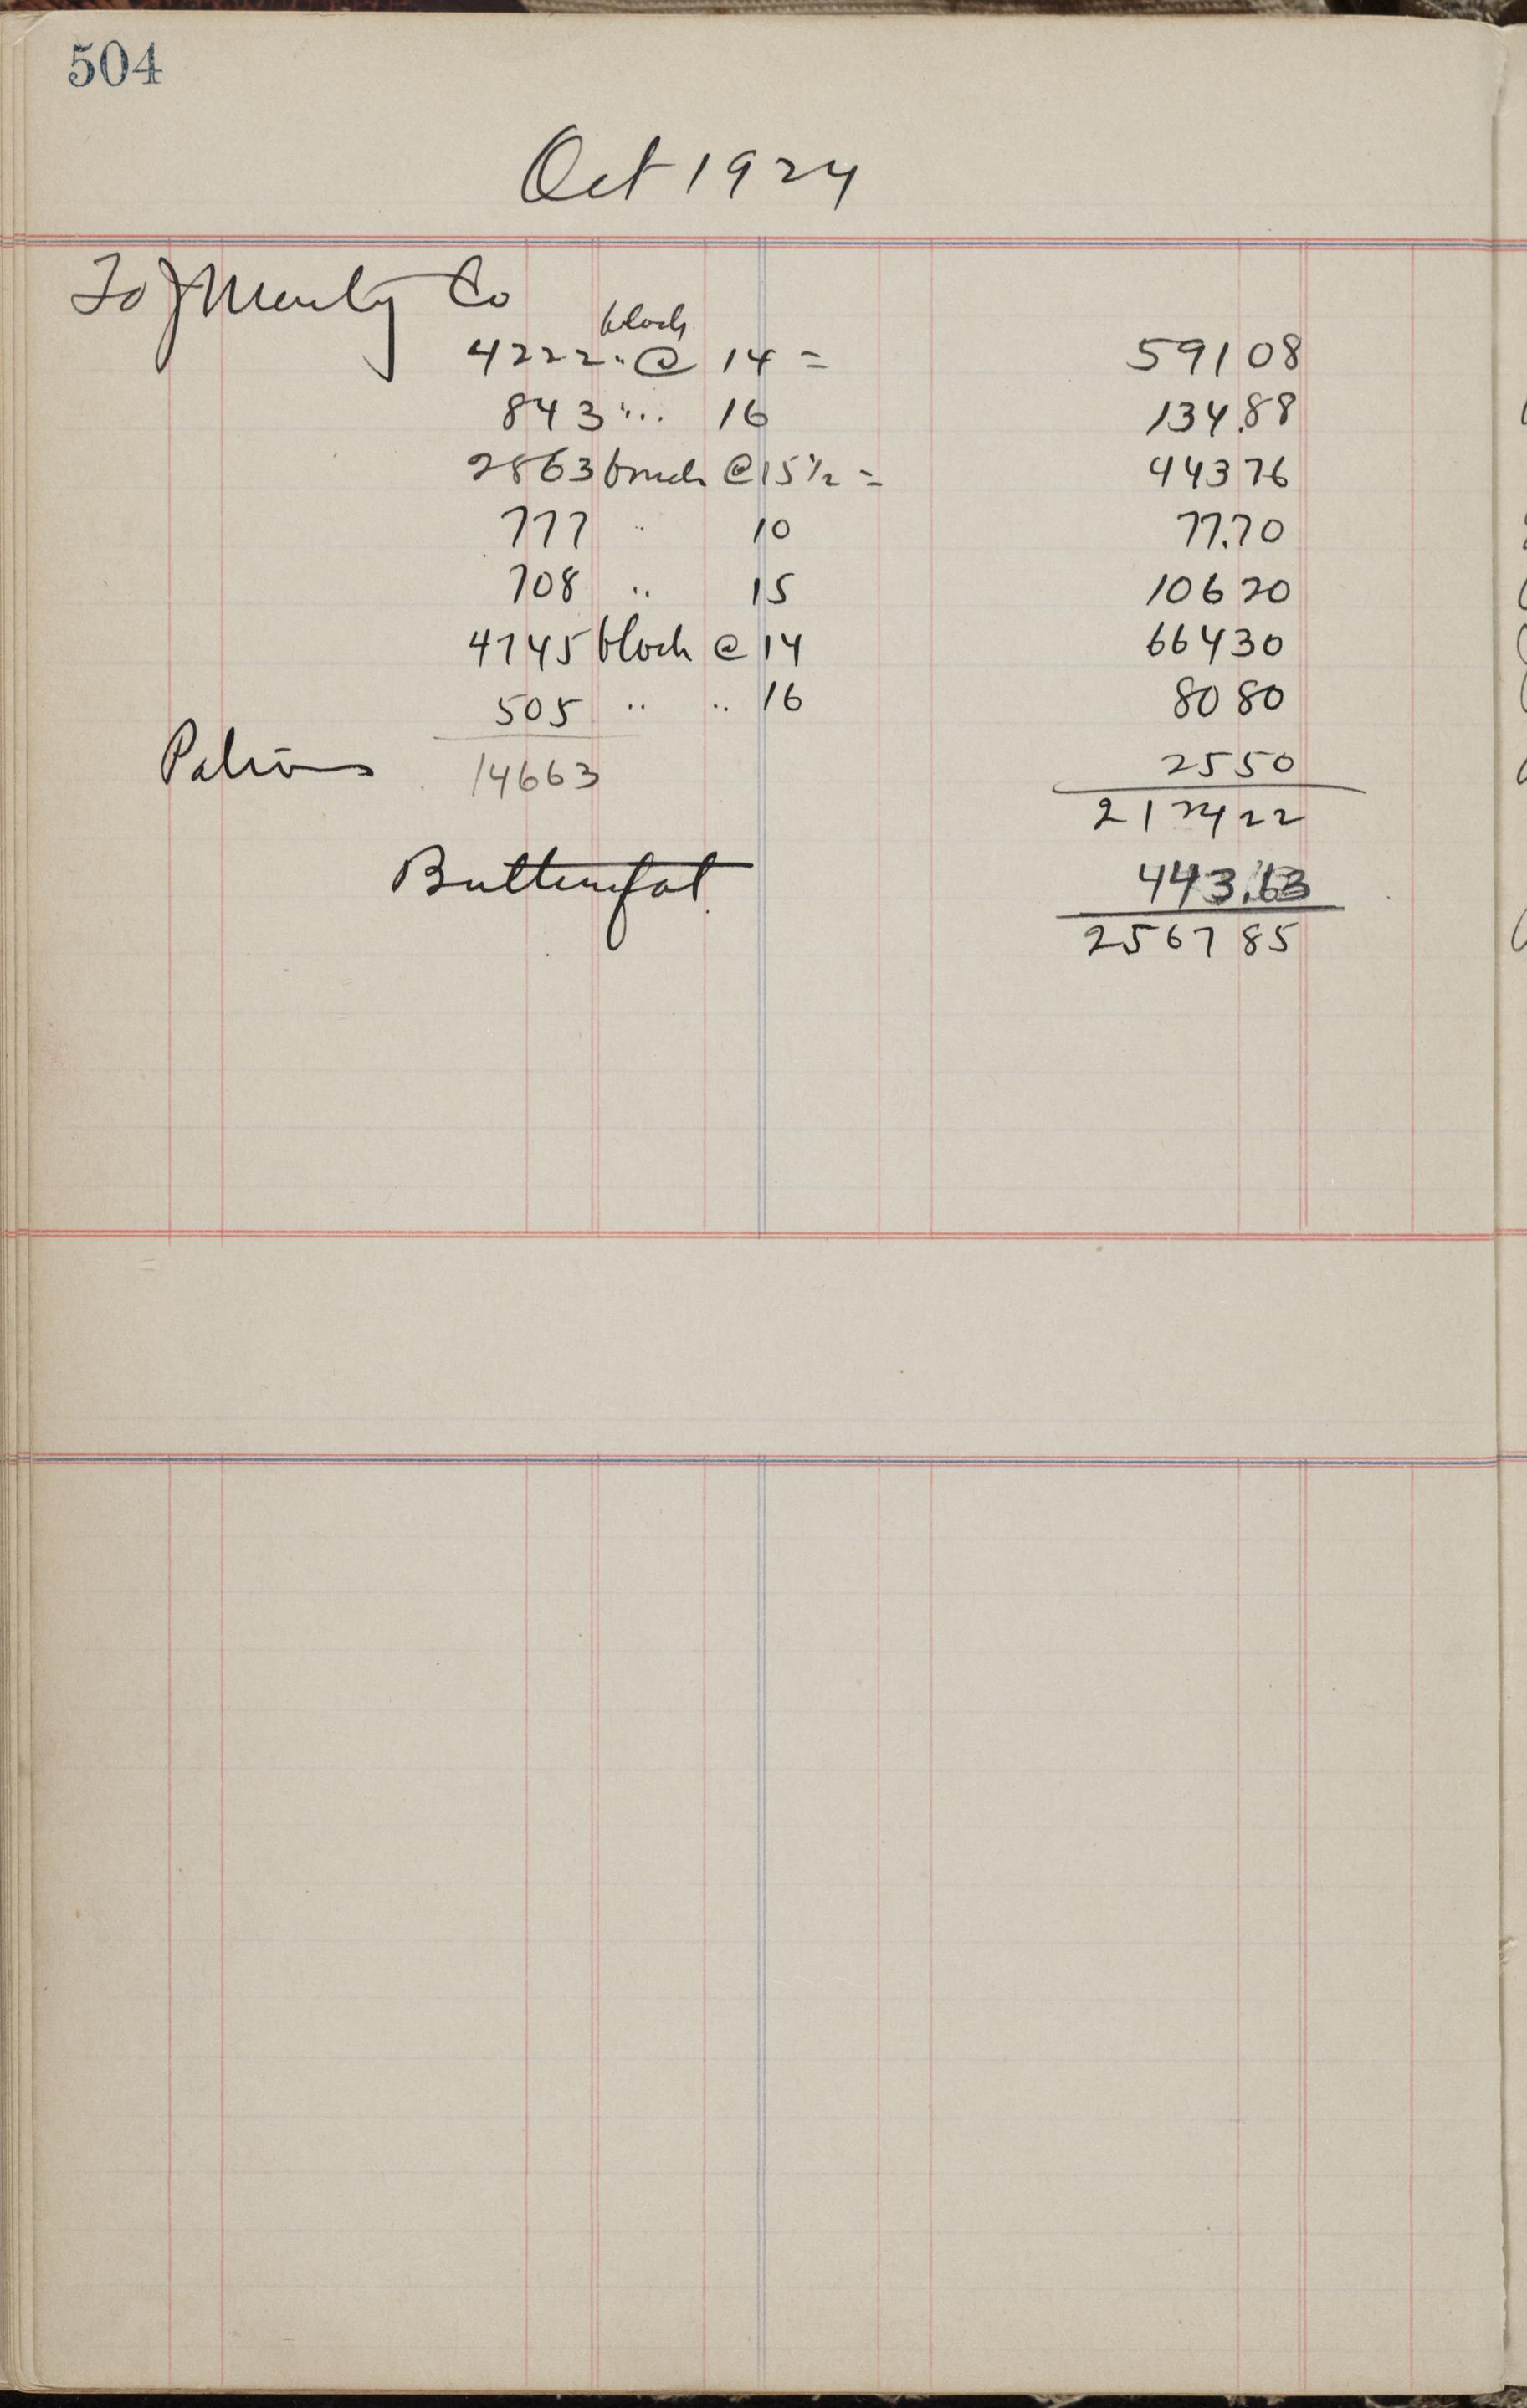 504
Oct 1924
To J Co
block
4222 " @ 14 = 591 08
843 " " 16 134.88
2863 brick @ 15 1/2 = 443 76
777 " 10 77.70
708 " 15 106 20
4745 block @ 14 664 30
505 " " 16 80 80
Patrons 14663 25 50
2124 22
Butterfat 443.63
2567 85